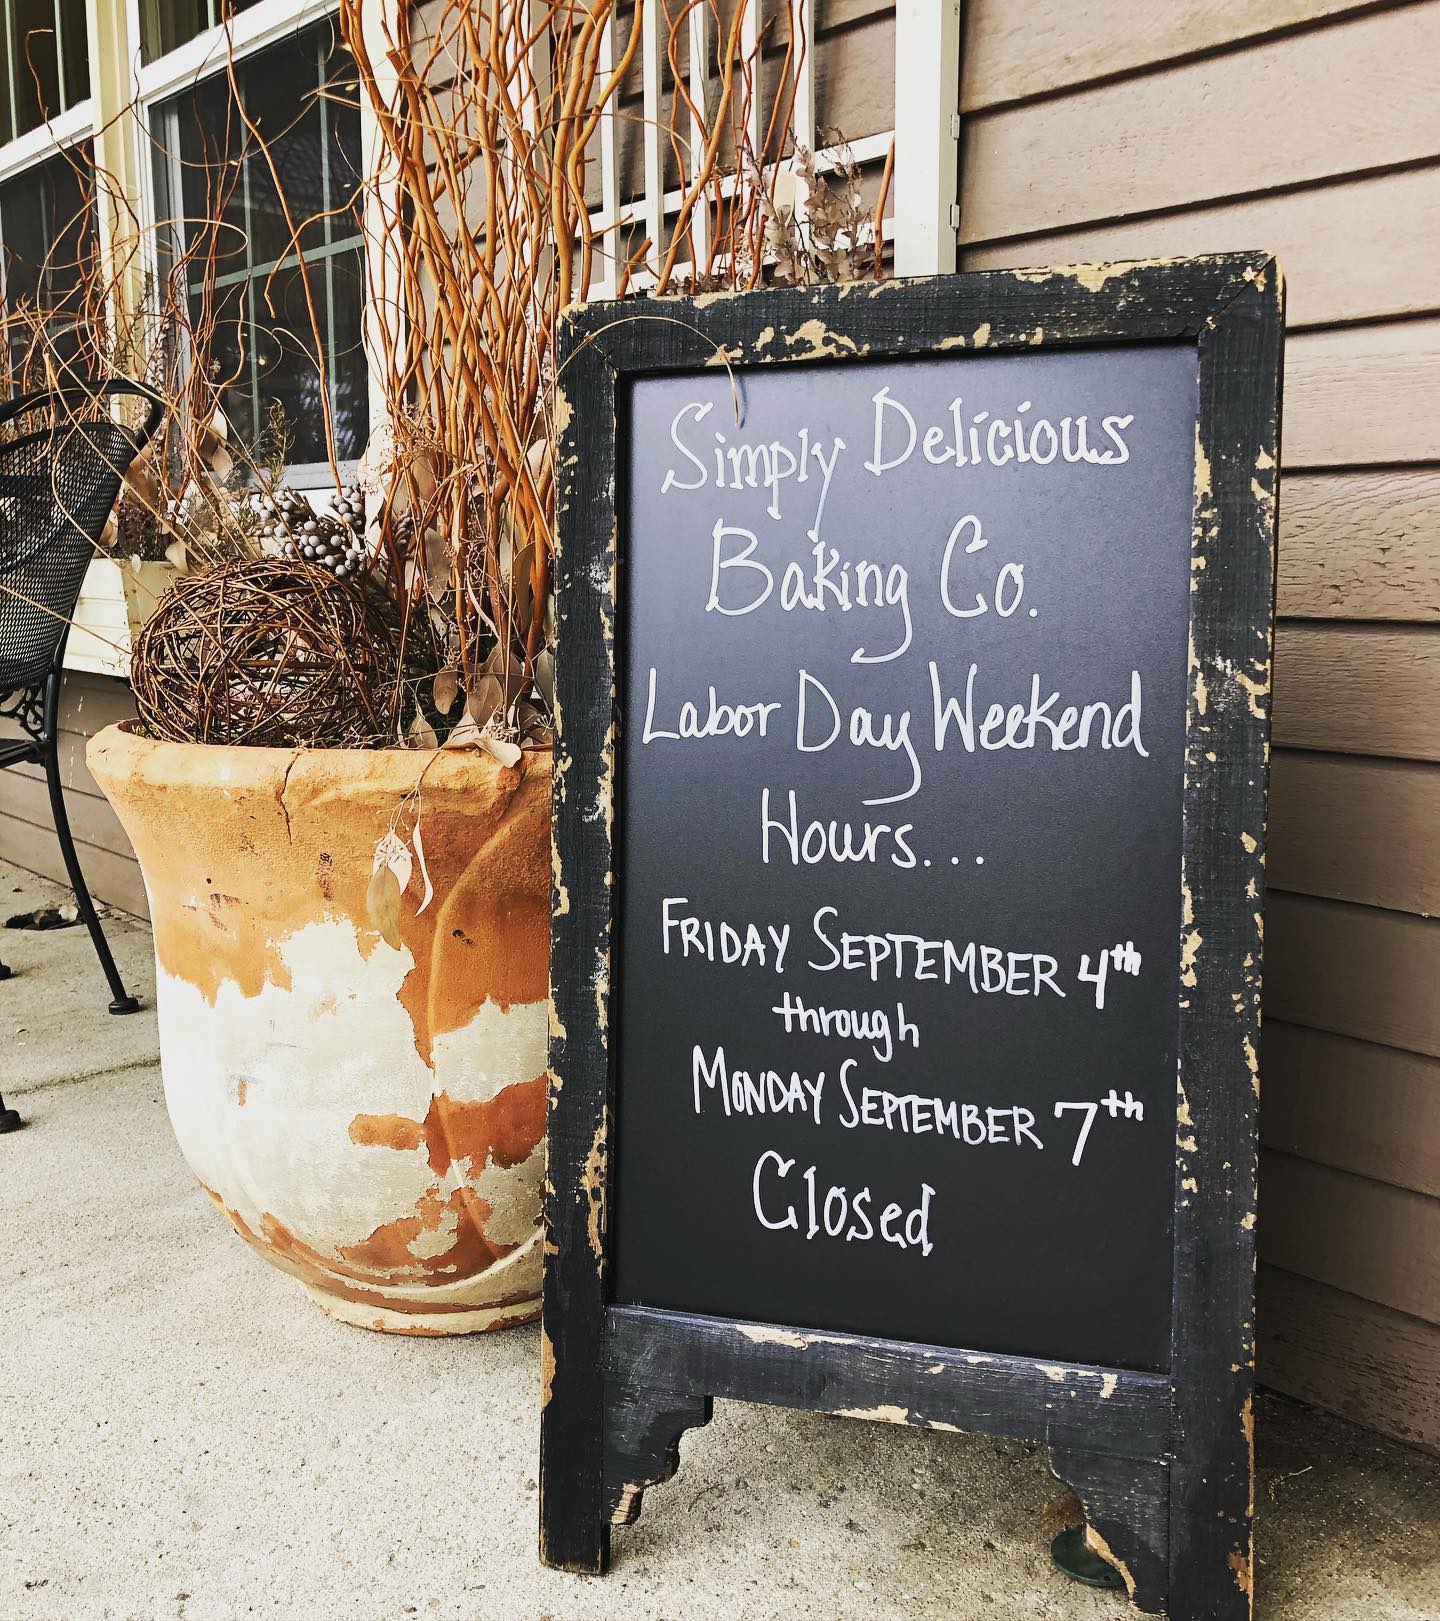 Simply Delicious
Baking Co.
Labor Day Weekend
Hours...
FRIDAY SEPTEMBER 4th
through
MONDAY SEPTEMBER 7th
Closed